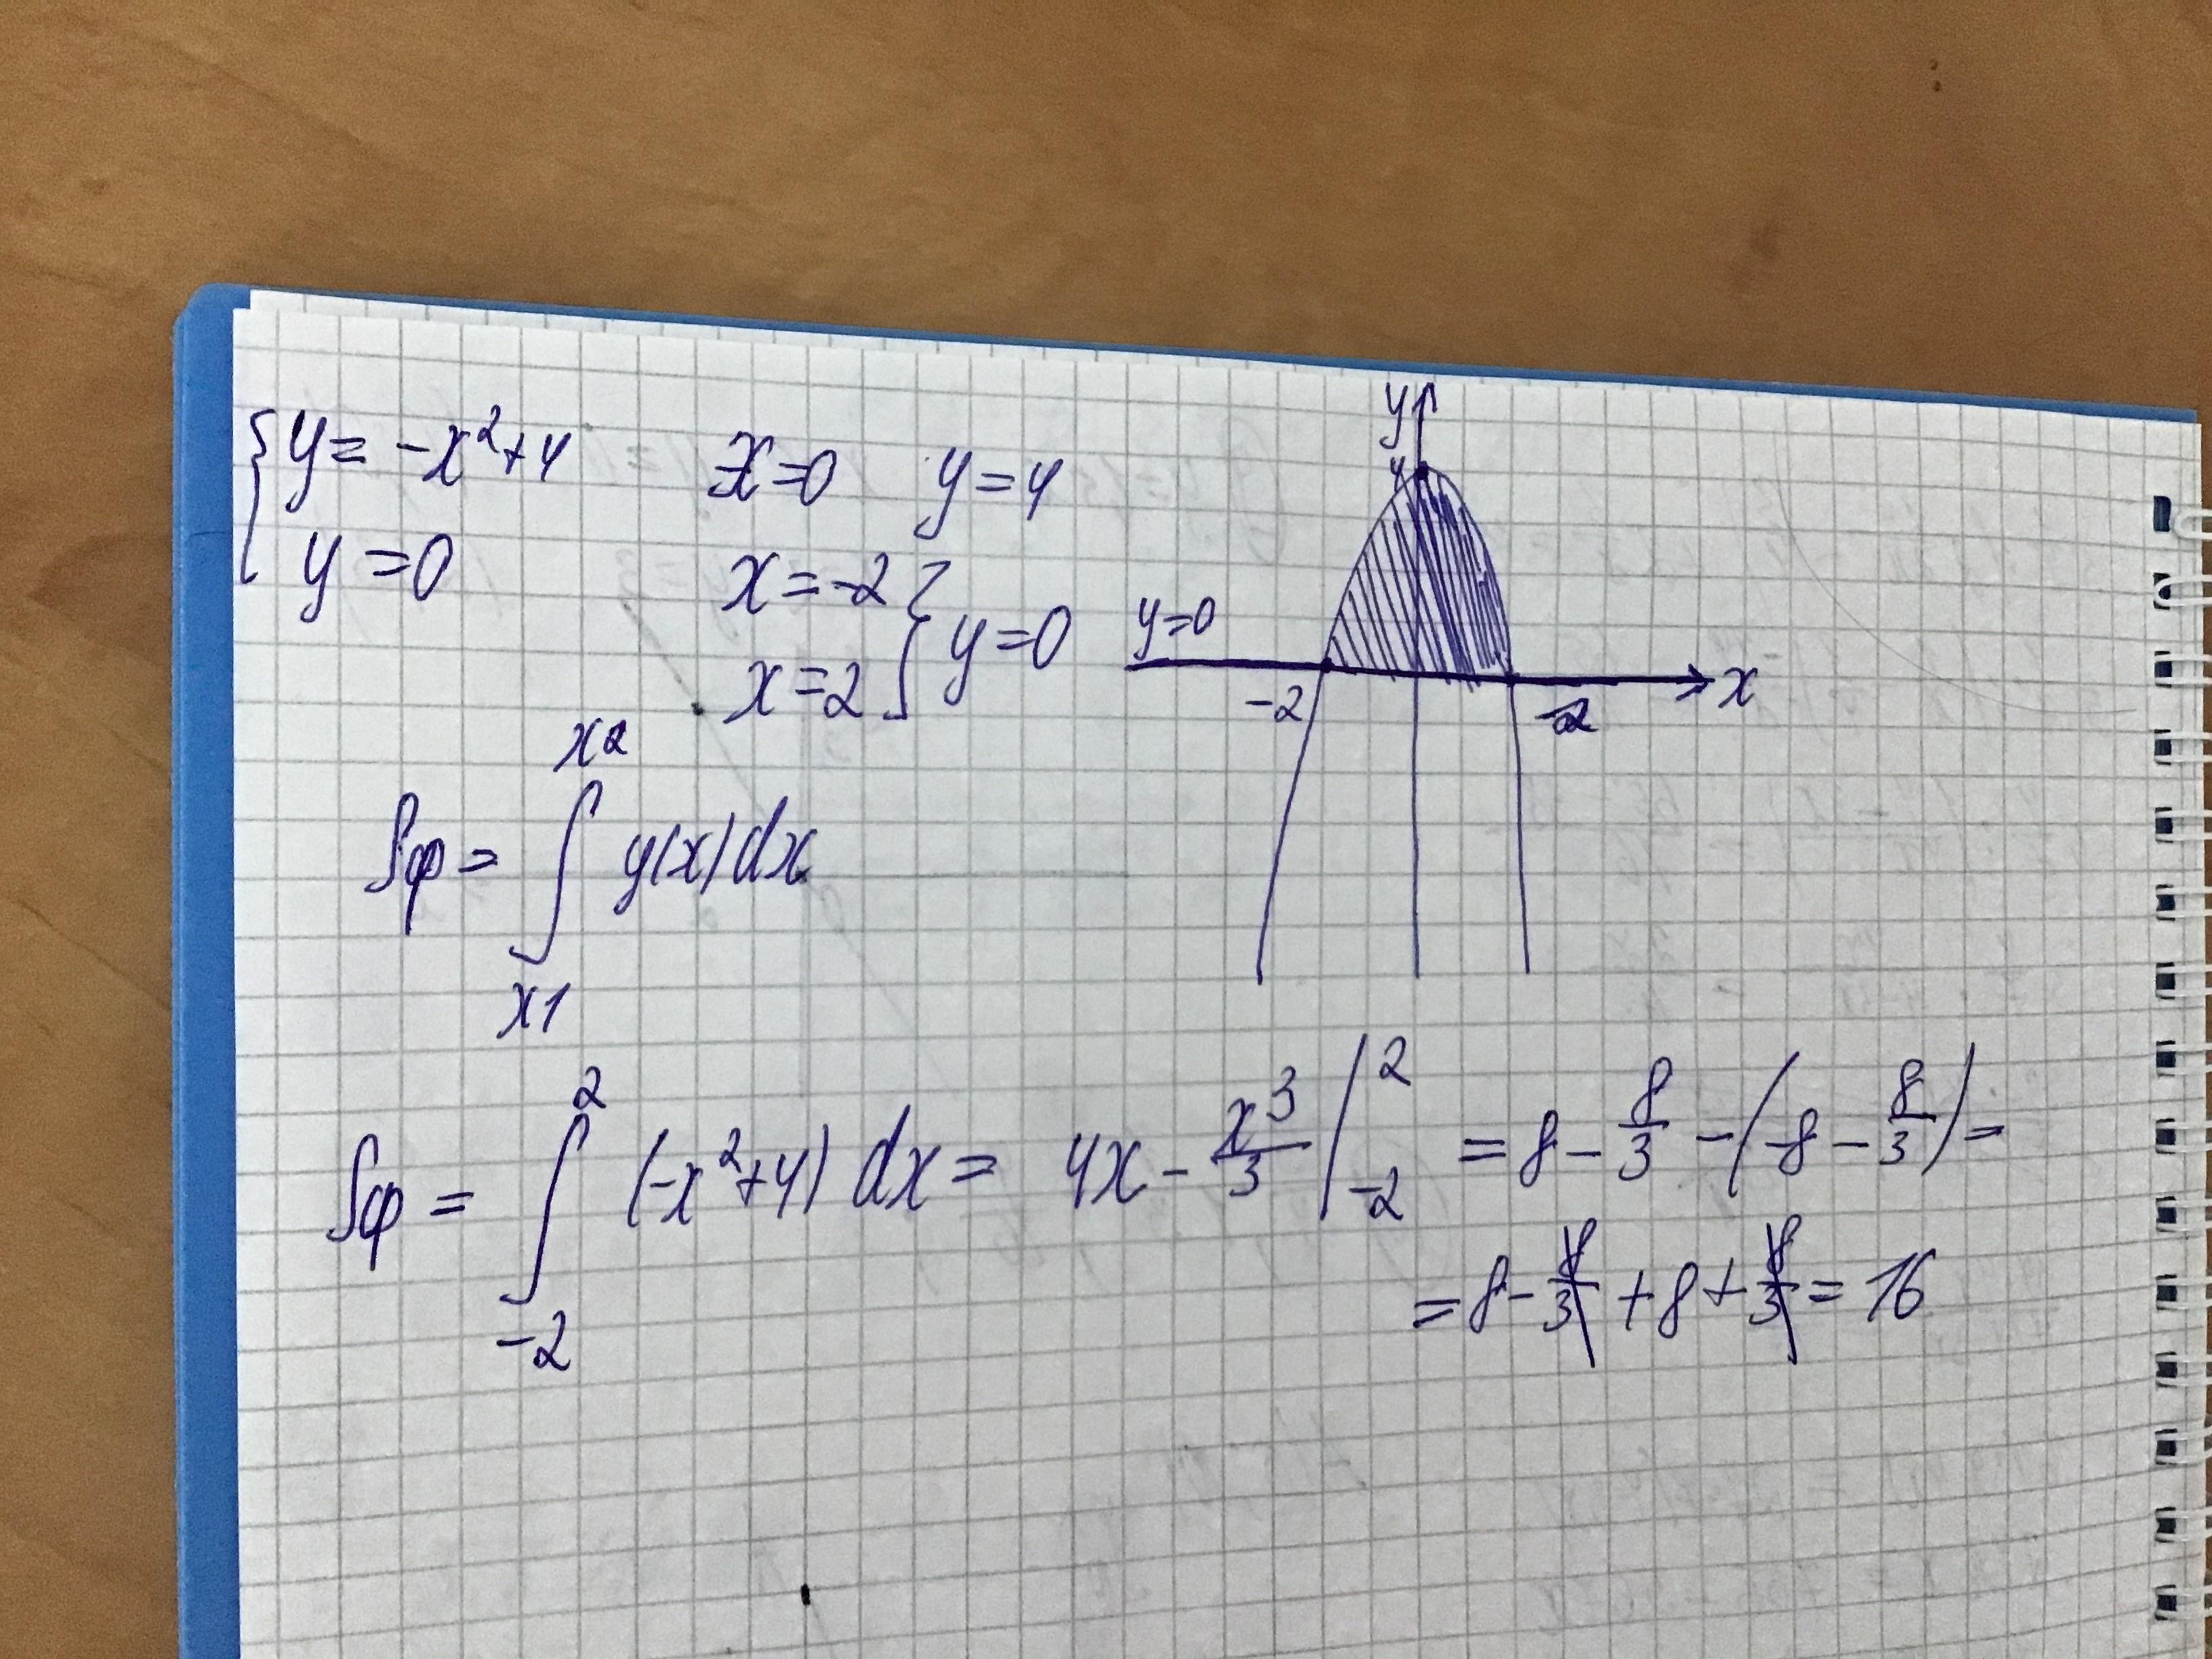 { y = -x²+4    x=0    y=4
y = 0    x = -2 } y=0
x = 2
y
4
y=0
-2
2
x
Sф = ∫_{x1}^{x2} y(x)dx
Sф = ∫_{-2}^{2} (-x²+4) dx = 4x - x³/3 |_{-2}^{2} = 8 - 8/3 - (-8 - 8/3) =
= 8 - 8/3 + 8 + 8/3 = 16